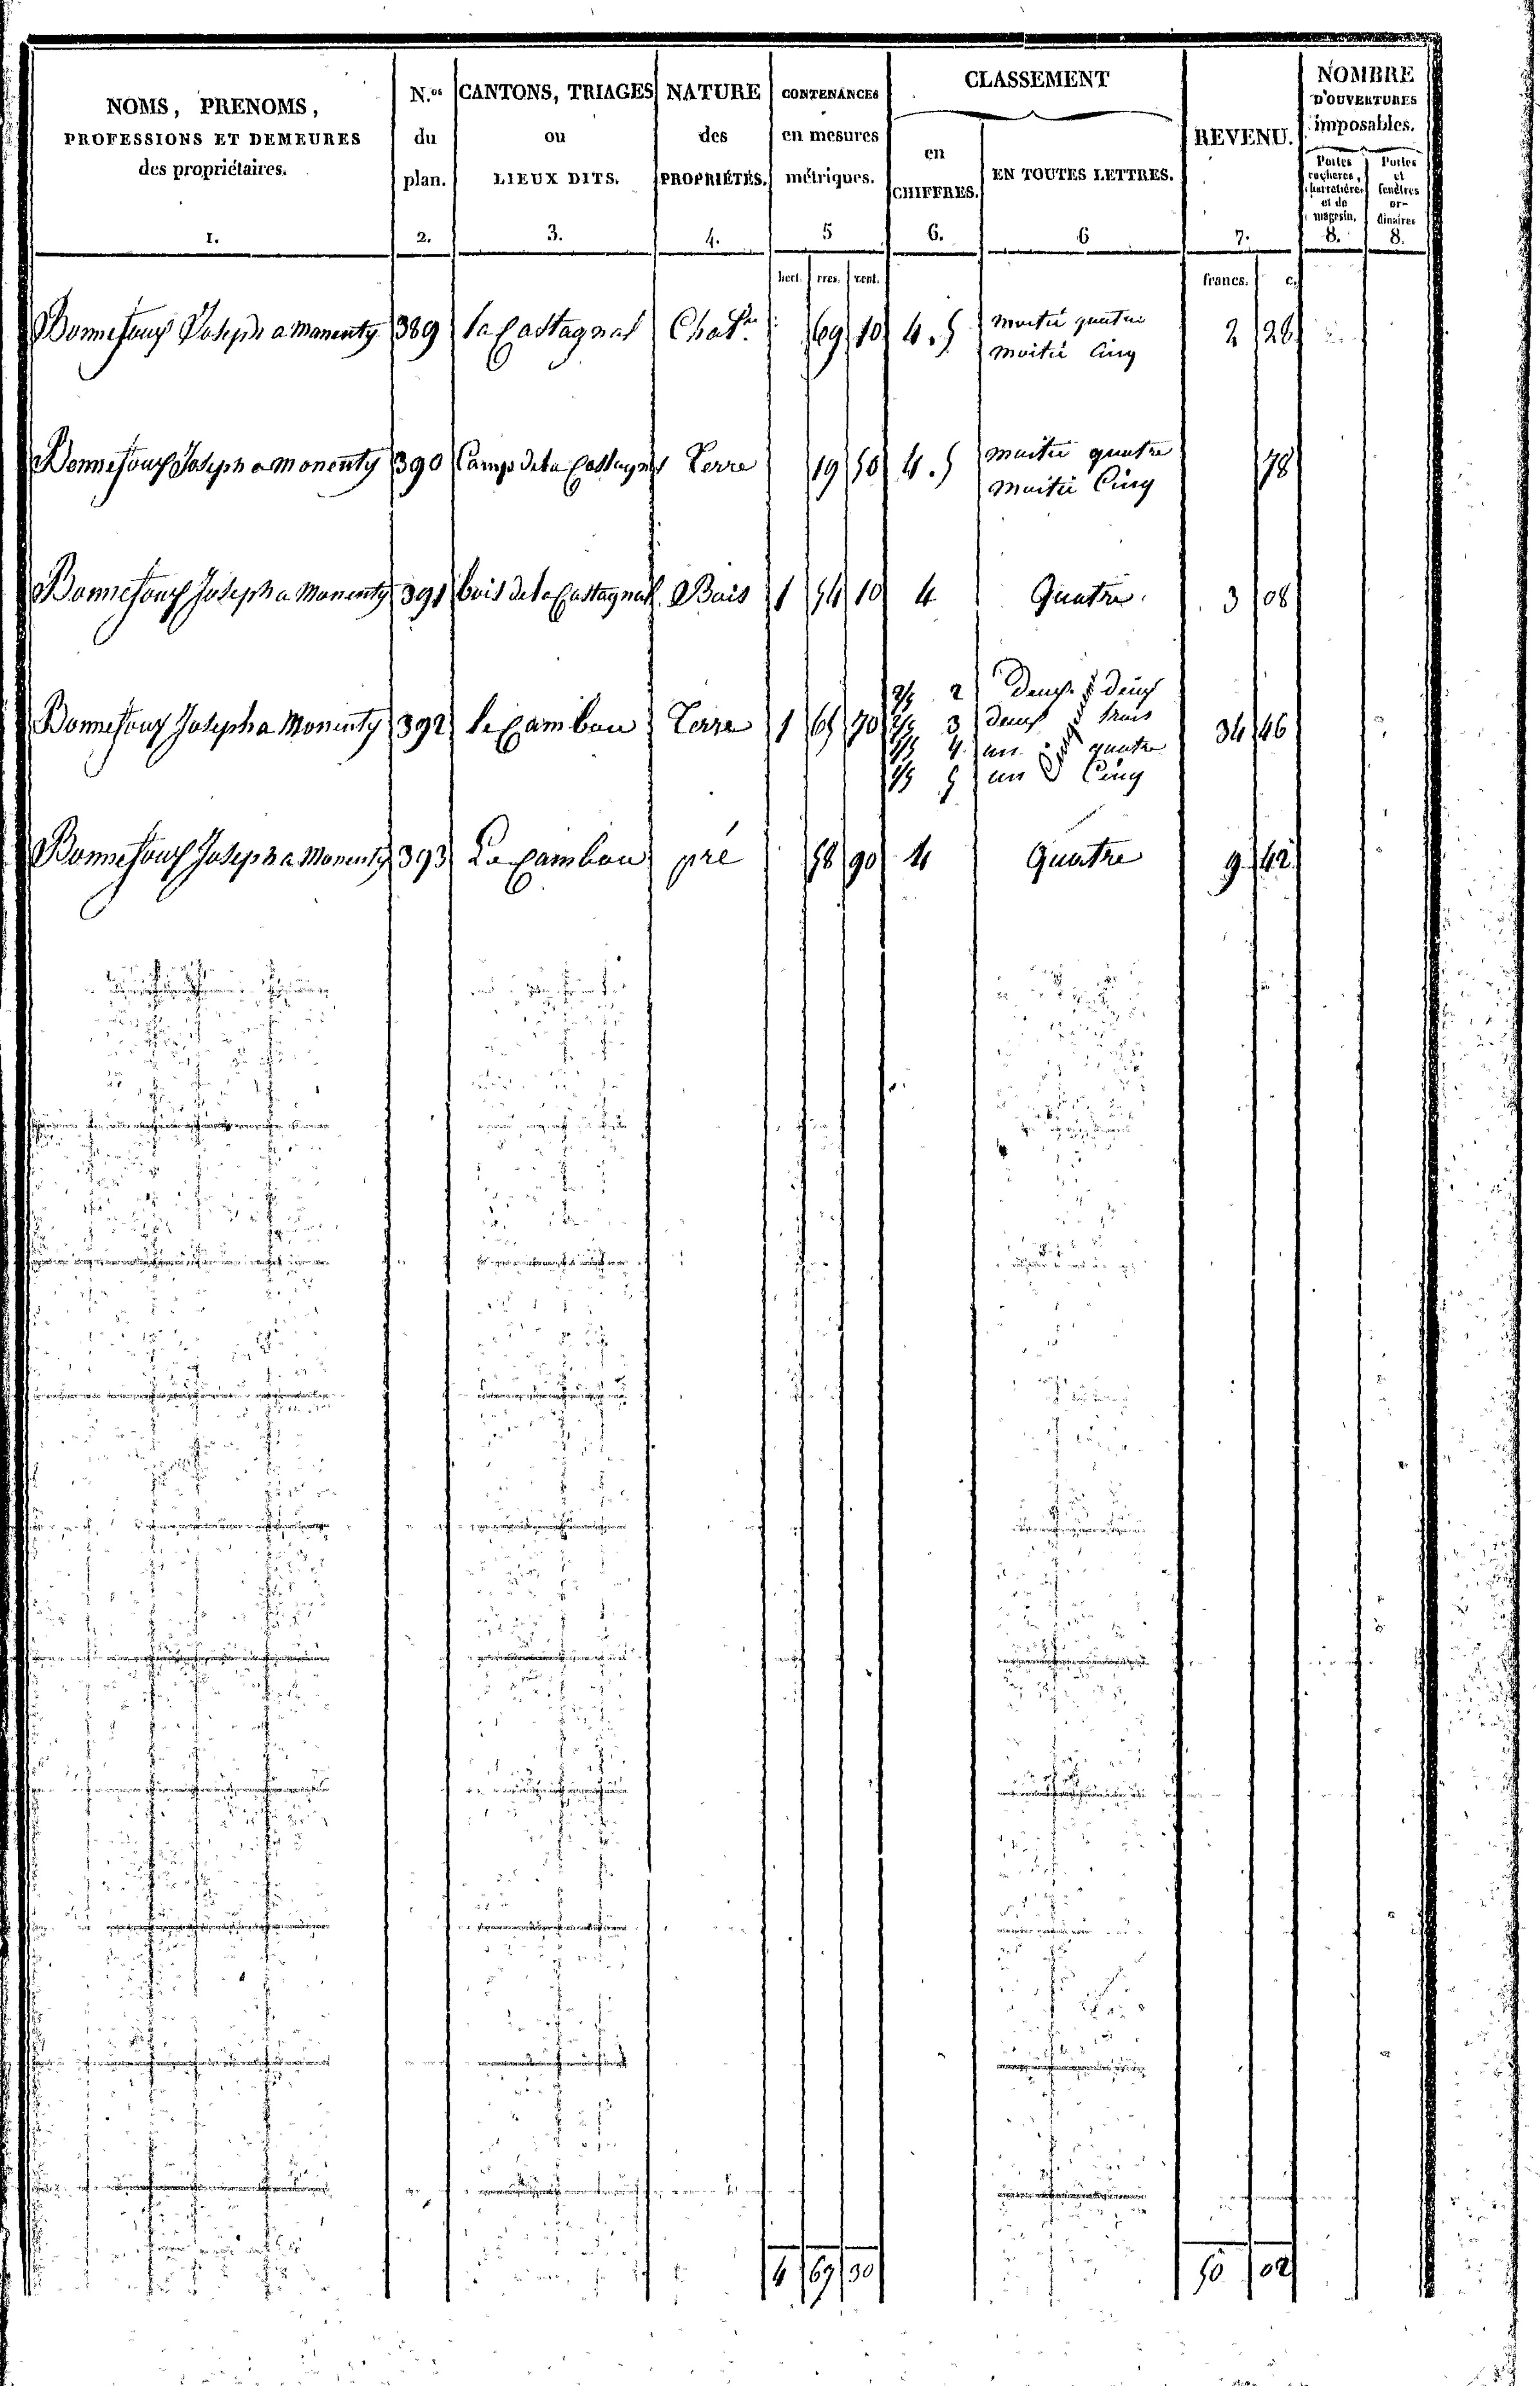 NOMS, PRENOMS,
PROFESSIONS ET DEMEURES
des propriétaires.
1.
N.os
du
plan.
2.
CANTONS, TRIAGES
ou
LIEUX DITS.
3.
NATURE
des
PROPRIÉTÉS.
4.
CONTENANCES
en mesures
métriques.
5
CLASSEMENT
en
CHIFFRES.
6.
EN TOUTES LETTRES.
6
REVENU.
7.
NOMBRE
D'OUVERTURES
imposables.
Portes
cochères,
charretières
et de
magasin.
8.
Portes
et
fenêtres
or-
dinaires
8.
hect. ares. cent. francs. c.
Bonnefoux Joseph a Manenty 389 la Castagnal Chat.re 69 10 4.5 moitié quatre 2 28
moitié Cinq
Bonnefoux Joseph a Monenty 390 Camp de la Castagnal Terre 19 50 4.5 moitié quatre 78
moitié Cinq
Bonnefoux Joseph a Monenty 391 bois de la Castagnal Bois 1 54 10 4 Quatre. 3 08
Bonnefoux Joseph a Monenty 392 le Cambou Terre 1 65 70 2/5 2 deux deux 34 46
2/5 3 deux trois
1/5 4 un quatre
1/5 5 un Cinq
Cinquièmes
Bonnefoux Joseph a Monenty 393 Le Cambou pré 58 90 4 Quatre 9 42
4 67 30 50 02